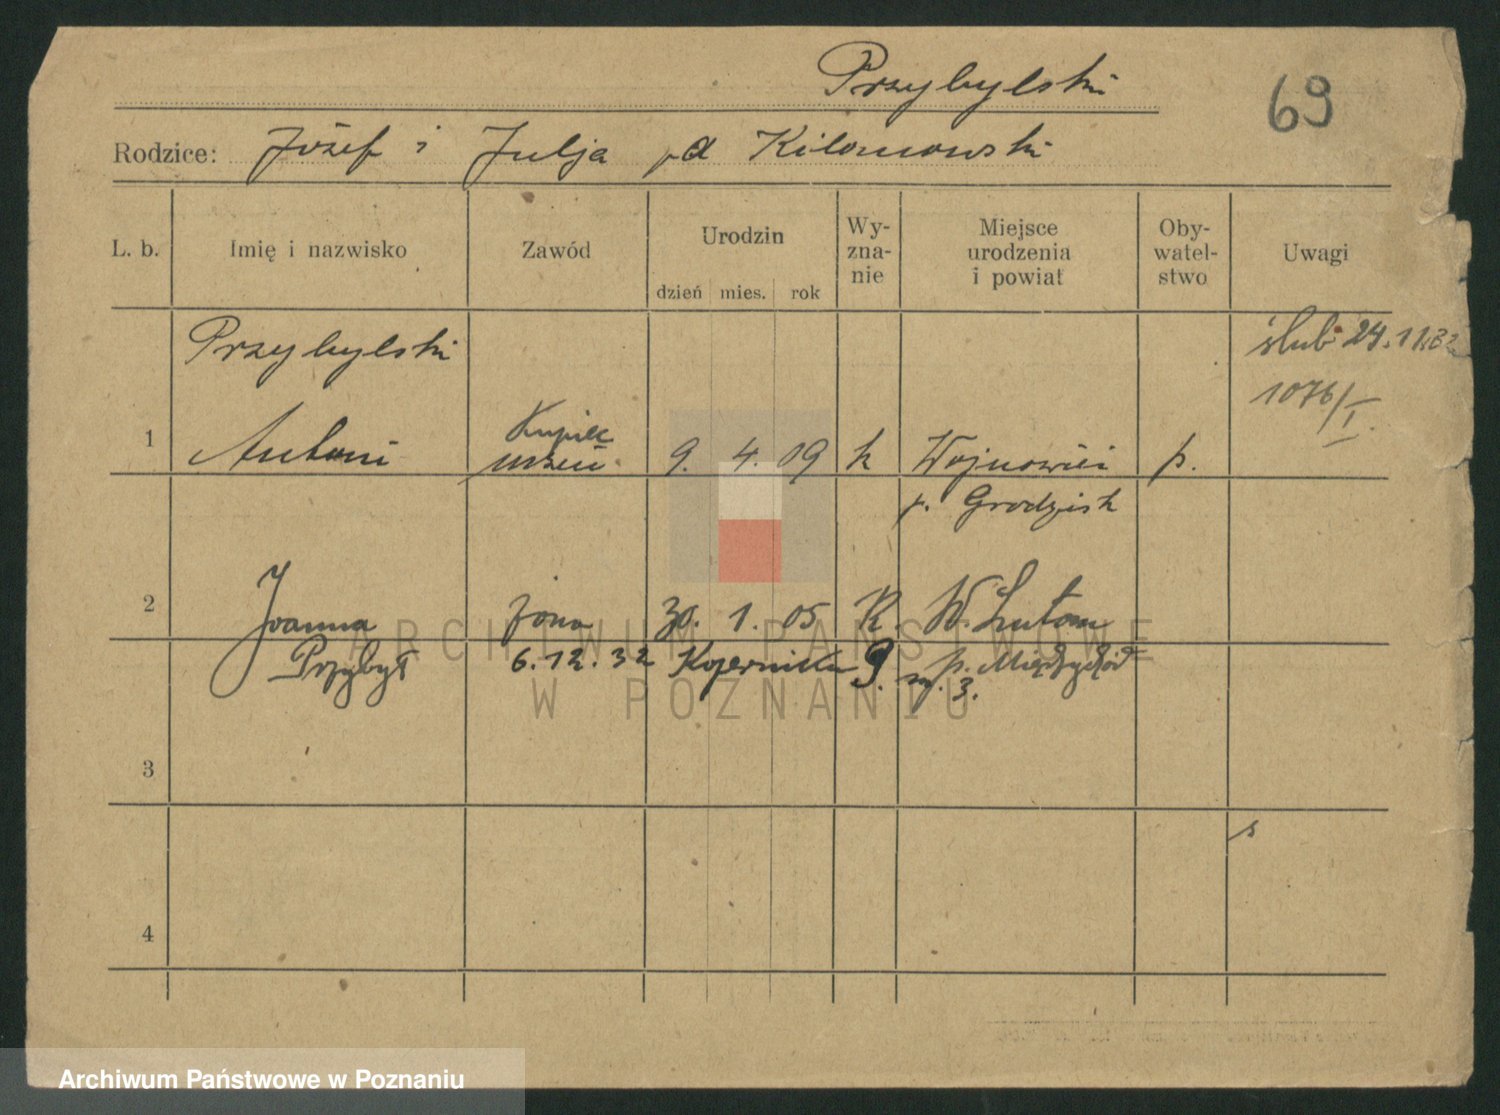 Przybylski
69
Rodzice: Józef i Julja
L. b. Imię i nazwisko Zawód Urodzin dzień mies. rok Wy-zna-nie Miejsce urodzenia i powiat Oby-watel-stwo Uwagi
Przybylski ślub 24.11.32
1076/I.
1 Antoni Kupiec 9. 4. 09 k Wojnowici p.
p. Grodzisk
2 Joanna żona 30. 1. 05 K W. Lutom
Przybył 6.12.32 Kopernika 9. m. 3. p. Międzychód
3
4
ARCHIWUM PAŃSTWOWE
W POZNANIU
Archiwum Państwowe w Poznaniu